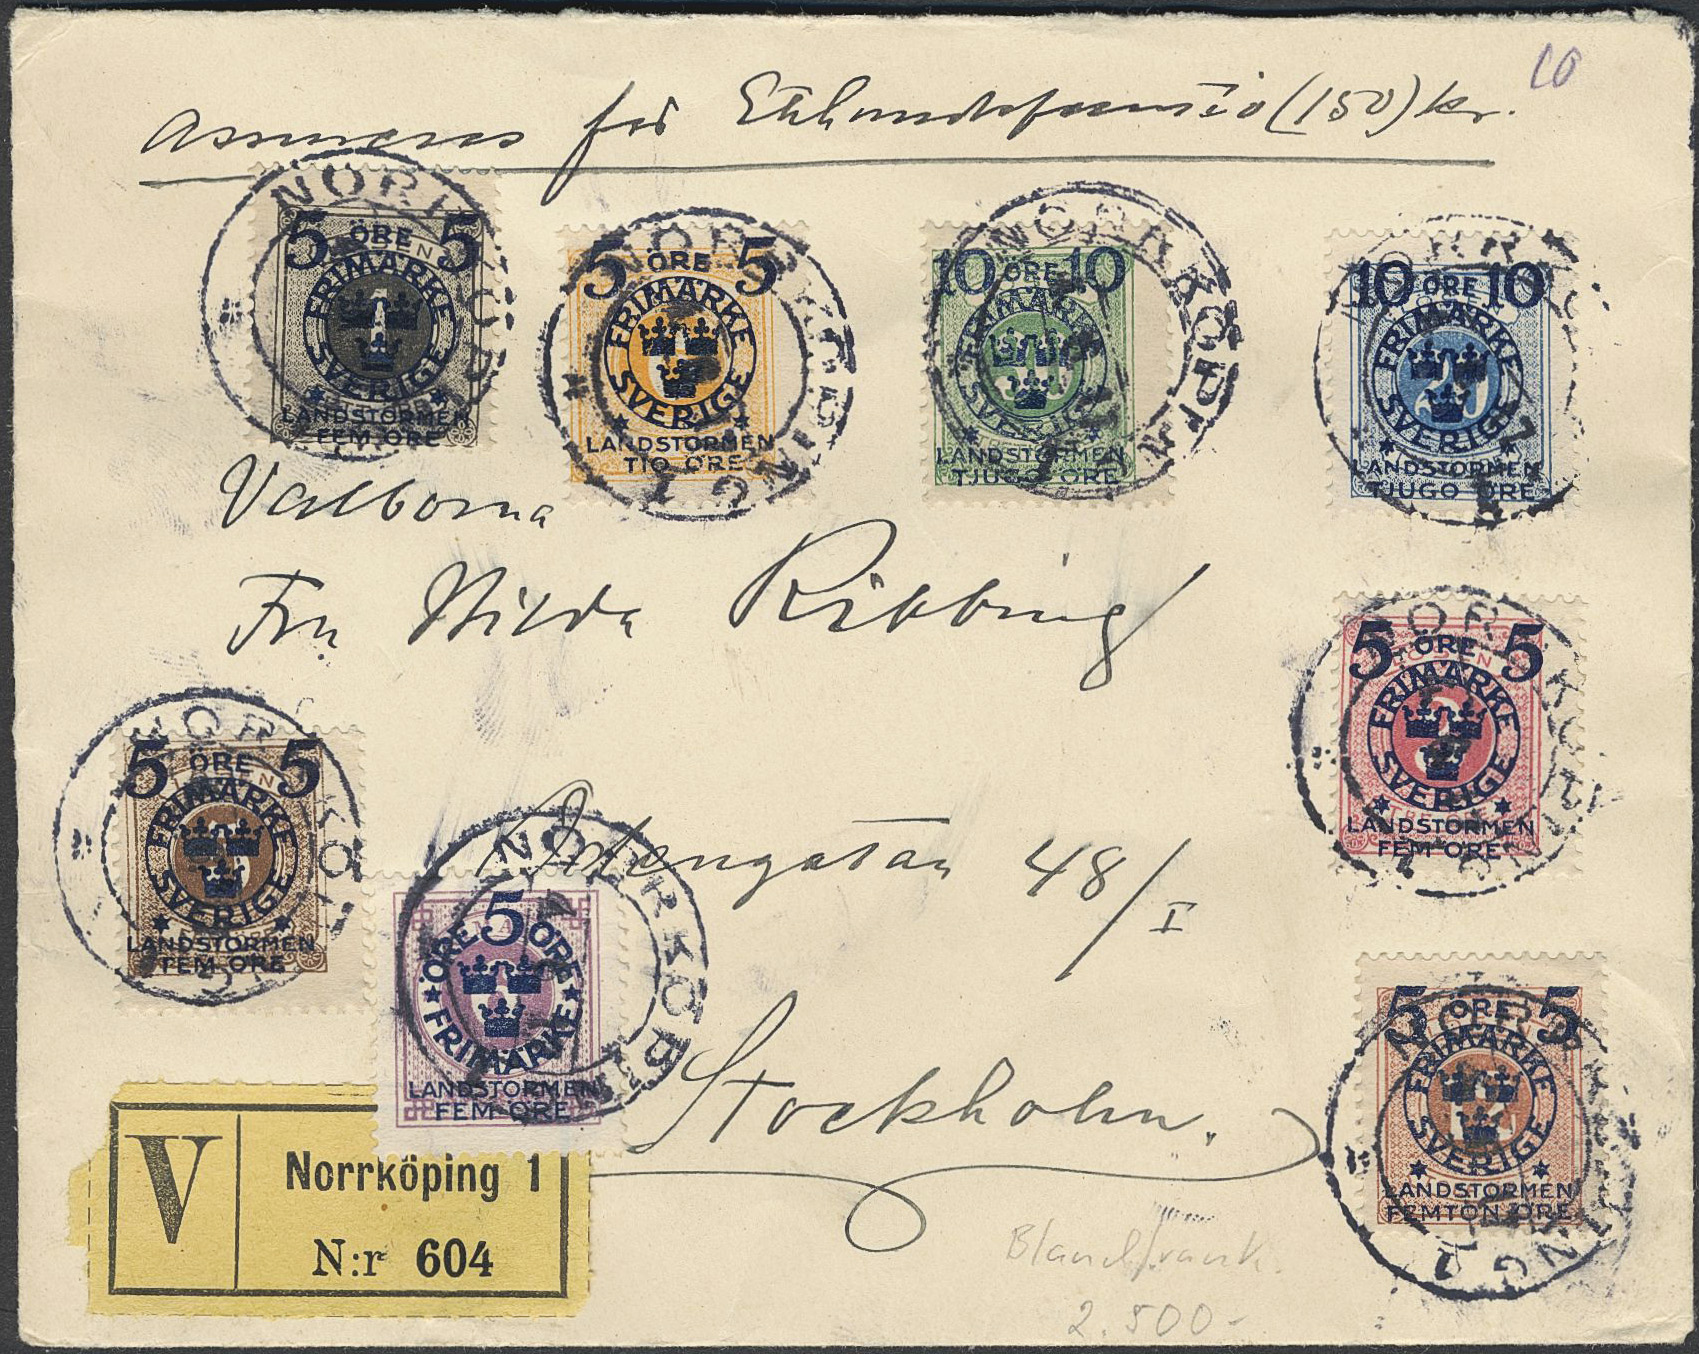 10
Assureras för Etthundrafemtio (150) kr.
5 ÖRE 5
FRIMÄRKE
SVERIGE
LANDSTORMEN
FEM ÖRE
5 ÖRE 5
FRIMÄRKE
SVERIGE
LANDSTORMEN
TIO ÖRE
10 ÖRE 10
FRIMÄRKE
SVERIGE
LANDSTORMEN
TJUGO ÖRE
10 ÖRE 10
FRIMÄRKE
20
SVERIGE
LANDSTORMEN
TJUGO ÖRE
NORRKÖPING
Välborna
Fru Hilda Ribbing
5 ÖRE 5
FRIMÄRKE
SVERIGE
LANDSTORMEN
FEM ÖRE
5 ÖRE 5
FRIMÄRKE
SVERIGE
LANDSTORMEN
FEM ÖRE
Artengatan 48/I
5
ÖRE ÖRE
FRIMÄRKE
LANDSTORMEN
FEM ÖRE
5 ÖRE 5
FRIMÄRKE
SVERIGE
LANDSTORMEN
FEMTON ÖRE
Stockholm.
V
Norrköping 1
N:r 604
Blandfrank.
2.500-